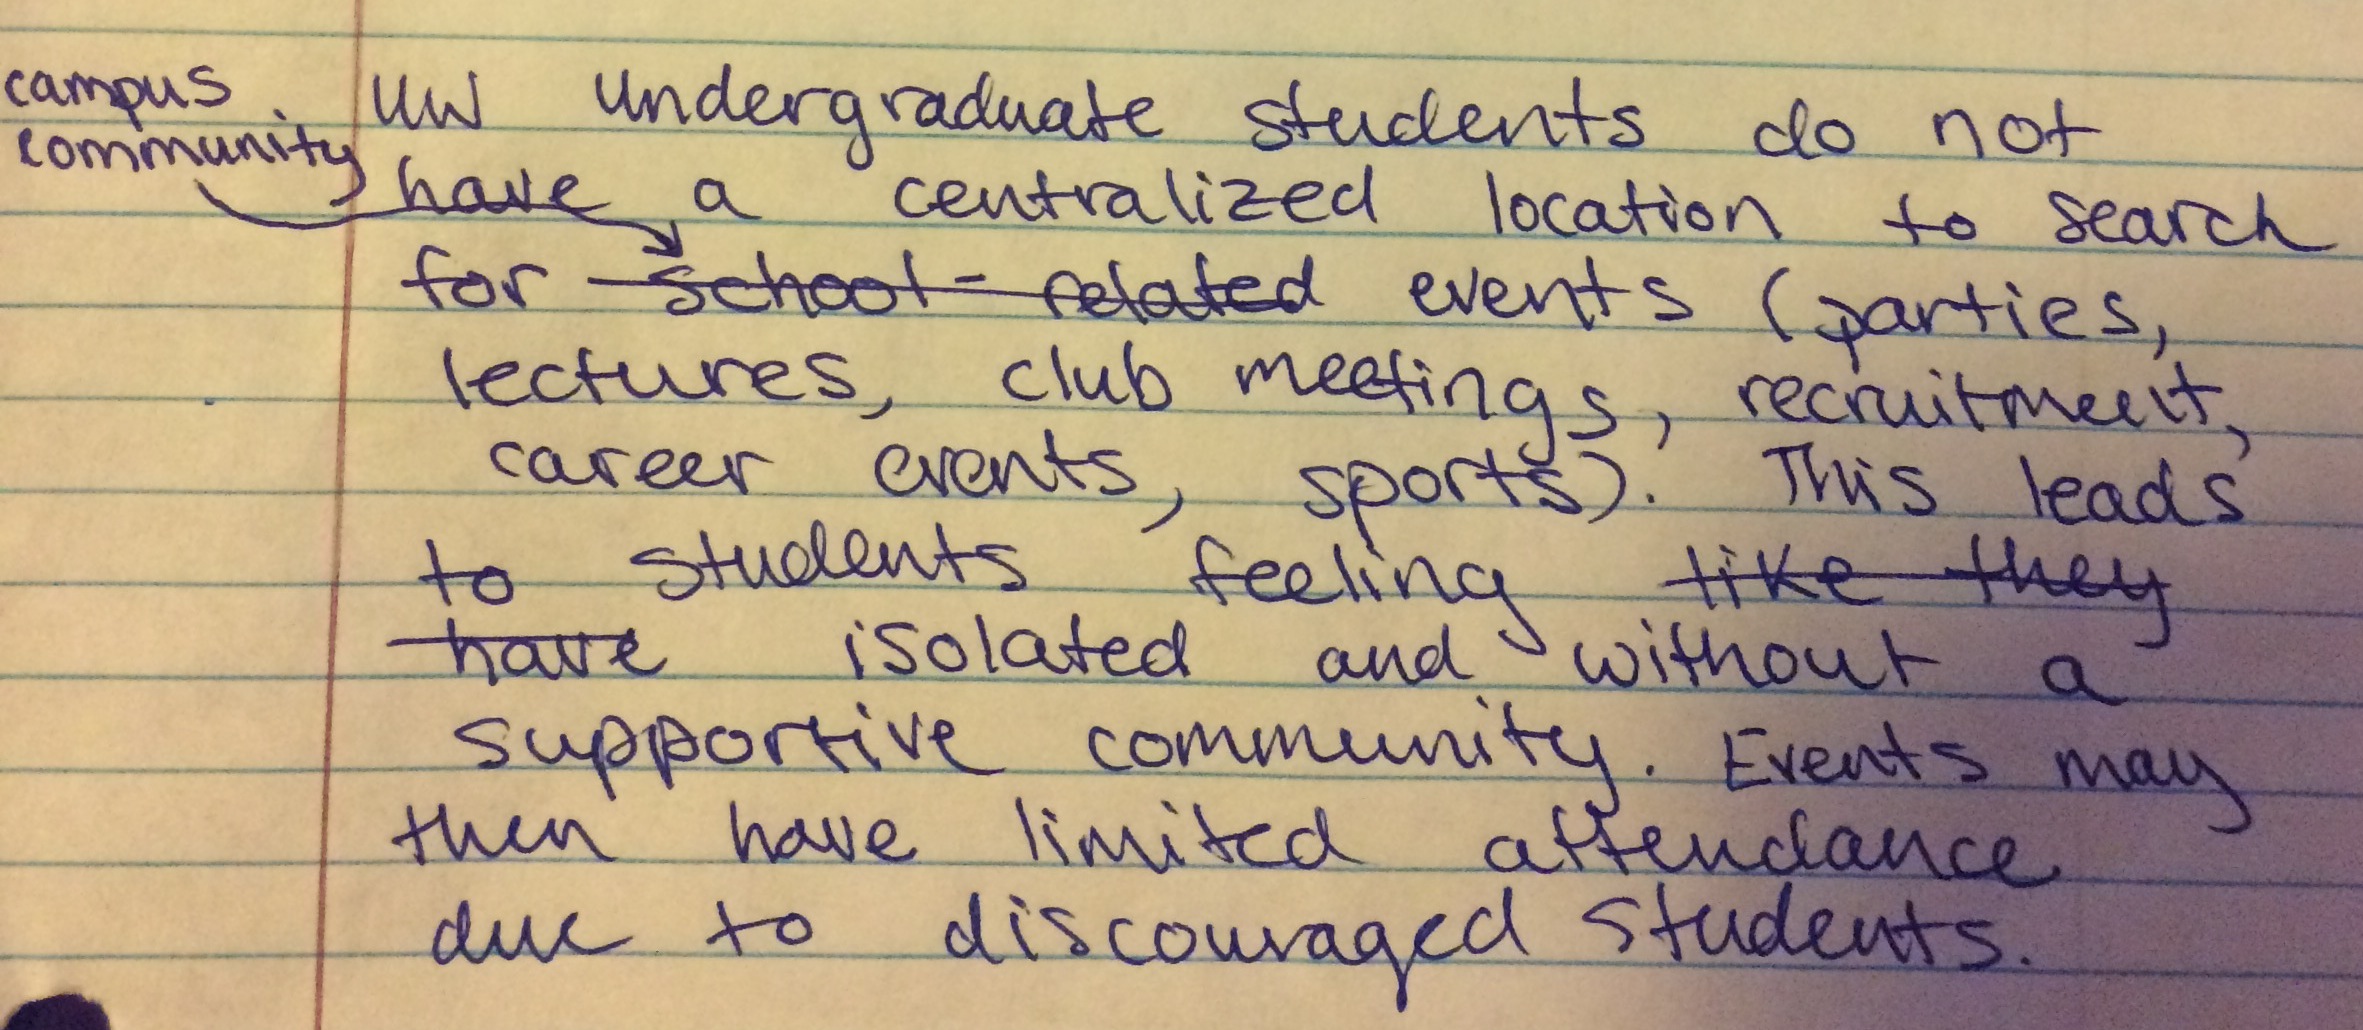 campus
community
UW Undergraduate students do not
have a centralized location to search
for school-related events (parties,
lectures, club meetings, recruitment,
career events, sports). This leads
to students feeling like they
have isolated and without a
supportive community. Events may
then have limited attendance
due to discouraged students.